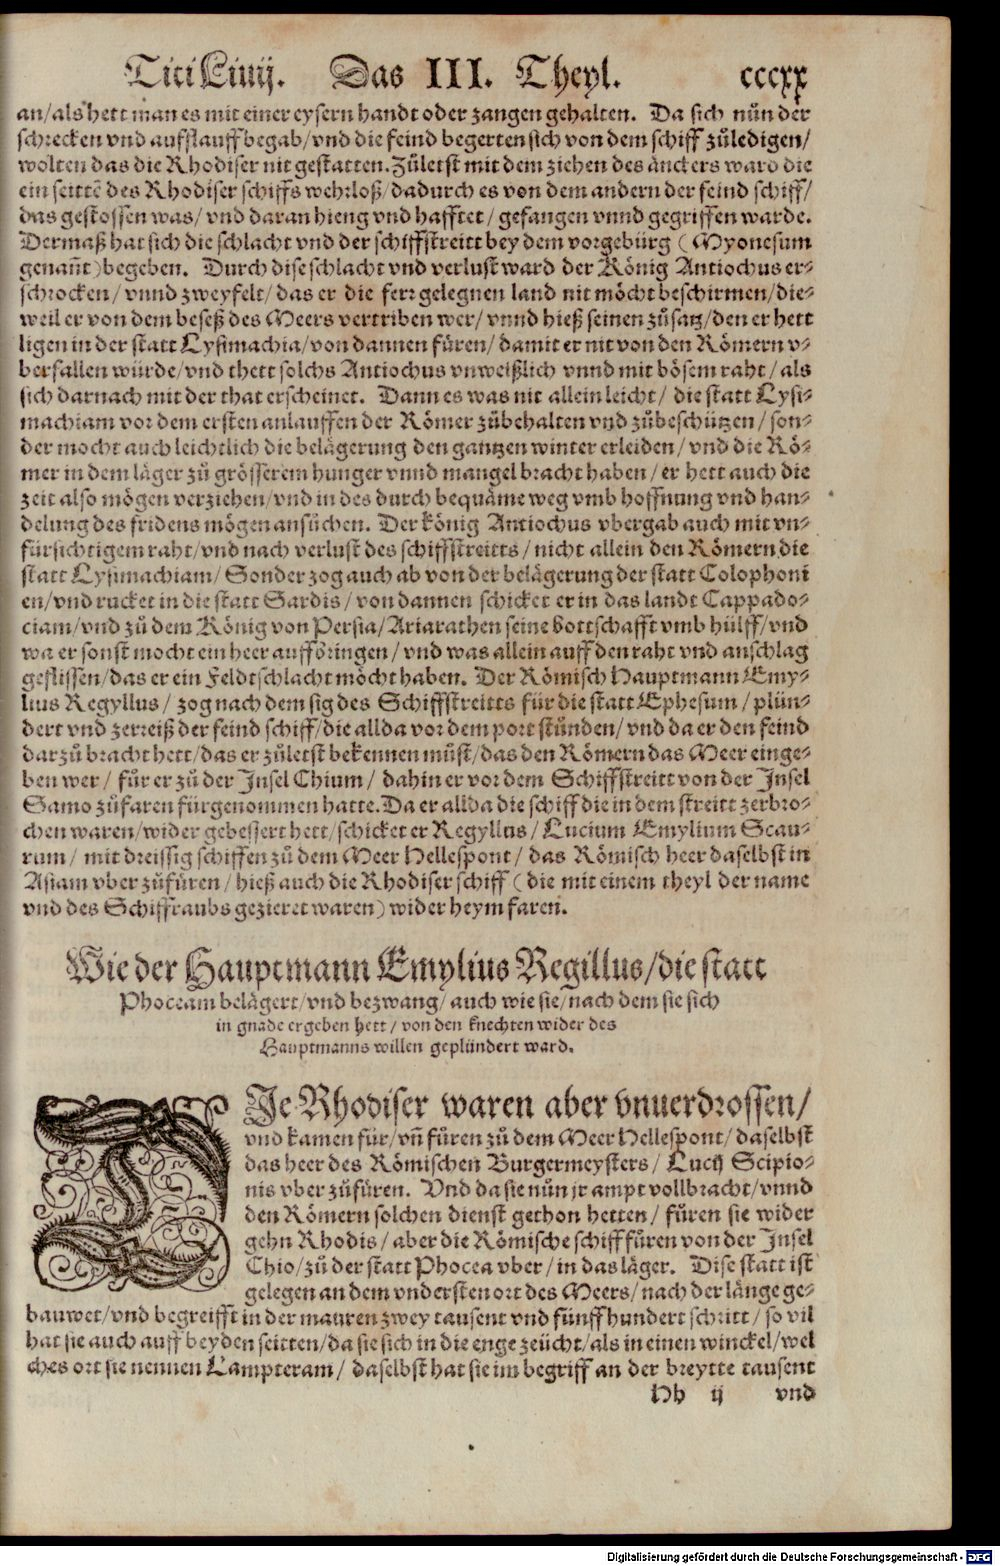 Titi Liuij. Das III. Theyl. cccxx
an/als hett man es mit einer eysern handt oder zangen gehalten. Da sich nůn der
schrecken vnd aufflauff begab/vnd die feind begerten sich von dem schiff zůledigen/
wolten das die Rhodiser nit gestatten. Zůletst mit dem ziehen des änckers ward die
ein seittē des Rhodiser schiffs wehrloß/dadurch es von dem andern der feind schiff/
das gestossen was/vnd daran hieng vnd hafftet/gefangen vnnd gegriffen warde.
Dermaß hat sich die schlacht vnd der schiffstreitt bey dem vorgebürg (Myonesum
genañt) begeben. Durch dise schlacht vnd verlust ward der König Antiochus er⸗
schrocken/vnnd zweyfelt/das er die ferr gelegnen land nit möcht beschirmen/die⸗
weil er von dem beseß des Meers vertriben wer/vnnd hieß seinen zůsatz/den er hett
ligen in der statt Lysimachia/von dannen fůren/damit er nit von den Römern v⸗
berfallen würde/vnd thett solchs Antiochus vnweißlich vnnd mit bösem raht/als
sich darnach mit der that erscheinet. Dann es was nit allein leicht/die statt Lysi⸗
machiam vor dem ersten anlauffen der Römer zůbehalten vnd zůbeschützen/son⸗
der mocht auch leichtlich die belägerung den gantzen winter erleiden/vnd die Rö⸗
mer in dem läger zů grösserem hunger vnnd mangel bracht haben/er hett auch die
zeit also mögen verziehen/vnd in des durch bequäme weg vmb hoffnung vnd han⸗
delung des fridens mögen ansůchen. Der könig Antiochus vbergab auch mit vn⸗
fürsichtigem raht/vnd nach verlust des schiffstreitts/nicht allein den Römern die
statt Lysimachiam/Sonder zog auch ab von der belägerung der statt Colophoni
en/vnd rucket in die statt Sardis/von dannen schicket er in das landt Cappado⸗
ciam/vnd zů dem König von Persia/Ariarathen seine bottschafft vmb hülff/vnd
wa er sonst mocht ein heer auffbringen/vnd was allein auff den raht vnd anschlag
geflissen/das er ein Feldtschlacht möcht haben. Der Römisch Hauptmann Emy⸗
lius Regyllus/zog nach dem sig des Schiffstreitts für die statt Ephesum/plün⸗
dert vnd zerreiß der feind schiff/die allda vor dem port stůnden/vnd da er den feind
darzů bracht hett/das er zůletst bekennen můst/das den Römern das Meer einge⸗
ben wer/fůr er zů der Insel Chium/dahin er vor dem Schiffstreitt von der Insel
Samo zůfaren fürgenommen hatte. Da er allda die schiff die in dem streitt zerbro⸗
chen waren/wider gebessert hett/schicket er Regyllus/Lucium Emylium Scau⸗
rum/mit dreissig schiffen zů dem Meer Hellespont/das Römisch heer daselbst in
Asiam vber zůfůren/hieß auch die Rhodiser schiff (die mit einem theyl der name
vnd des Schiffraubs gezieret waren) wider heym faren.
Wie der Hauptmann Emylius Regillus/die statt
Phoceam belägert/vnd bezwang/auch wie sie/nach dem sie sich
in gnade ergeben hett/von den knechten wider des
Hauptmanns willen geplündert ward.
DIe Rhodiser waren aber vnuerdrossen/
vnd kamen für/vñ fůren zů dem Meer Hellespont/daselbst
das heer des Römischen Burgermeysters/Lucij Scipio⸗
nis vber zůfůren. Vnd da sie nůn jr ampt vollbracht/vnnd
den Römern solchen dienst gethon hetten/fůren sie wider
gehn Rhodis/aber die Römische schiff fůren von der Insel
Chio/zů der statt Phocea vber/in das läger. Dise statt ist
gelegen an dem vndersten ort des Meers/nach der länge ge⸗
bauwet/vnd begreifft in der mauren zwey tausent vnd fünffhundert schritt/so vil
hat sie auch auff beyden seitten/da sie sich in die enge zeücht/als in einen winckel/wel
ches ort sie nennen Lampteram/daselbst hat sie im begriff an der breytte tausent
Hh ij vnd
Digitalisierung gefördert durch die Deutsche Forschungsgemeinschaft - DFG